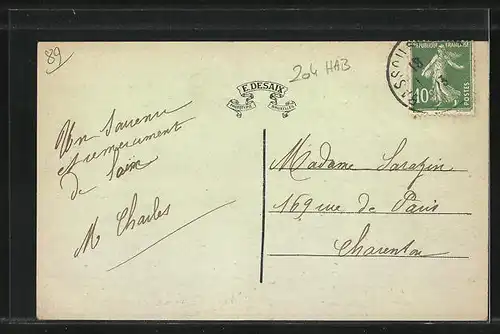 89
204 HAB
E. DESAIX
BRUXELLES
REPUBLIQUE FRANÇAISE
10c
POSTES
Un Souvenir
et
de
M Charles
Madame Sarazin
169 rue de Paris
Charenton